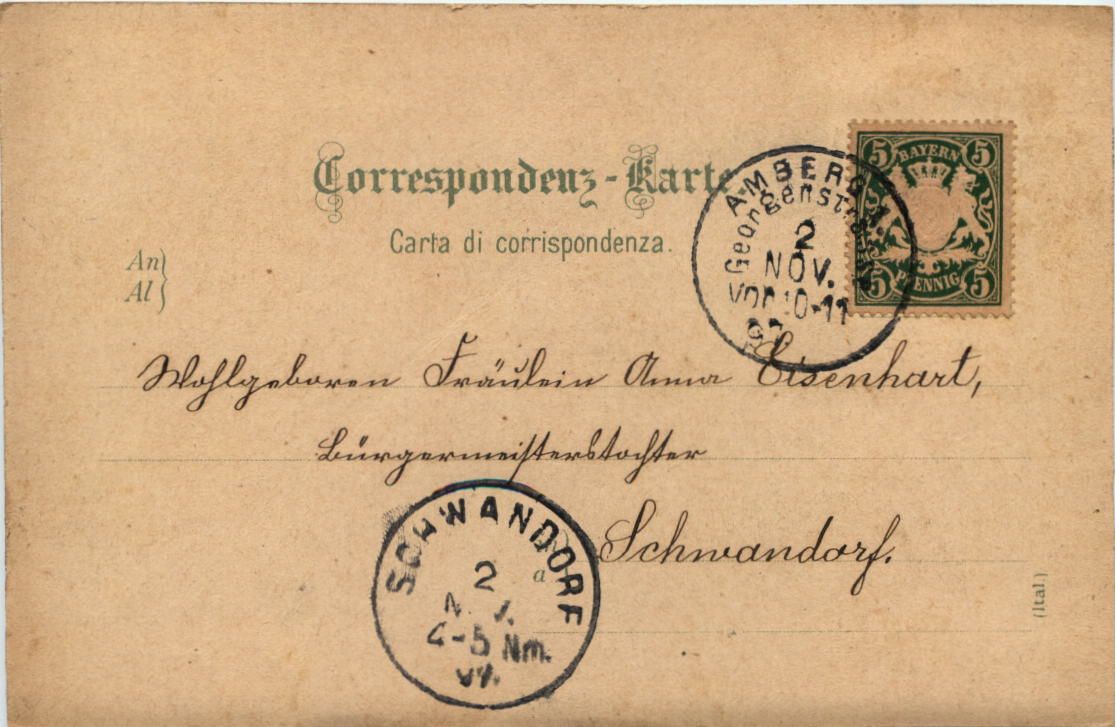 Correspondenz-Karte
Carta di corrispondenza.
An}
Al}
5 BAYERN 5
5 PFENNIG 5
AMBERG 1.
Georgenstr
2
NOV.
Vor 10-11
97
Wohlgeboren Fräulein Anna Eisenhart,
Bürgermeisterstochter
Schwandorf.
SCHWANDORF
2
4-5 Nm.
97.
a
(Ital.)